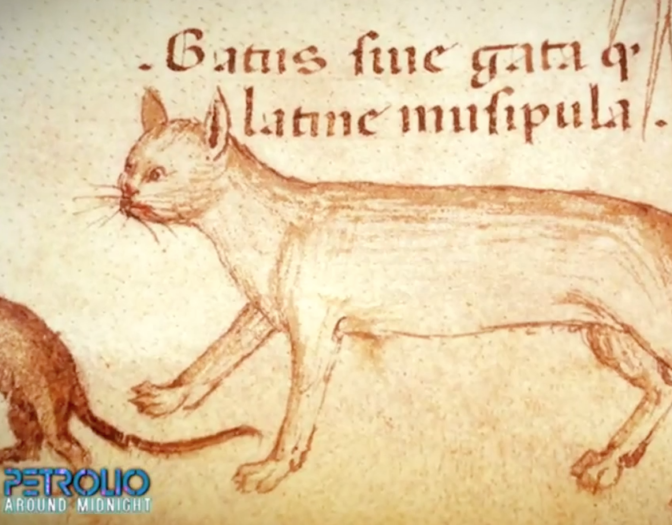 .Gatus siue gata q
latine musipula.
PETROLIO
AROUND MIDNIGHT